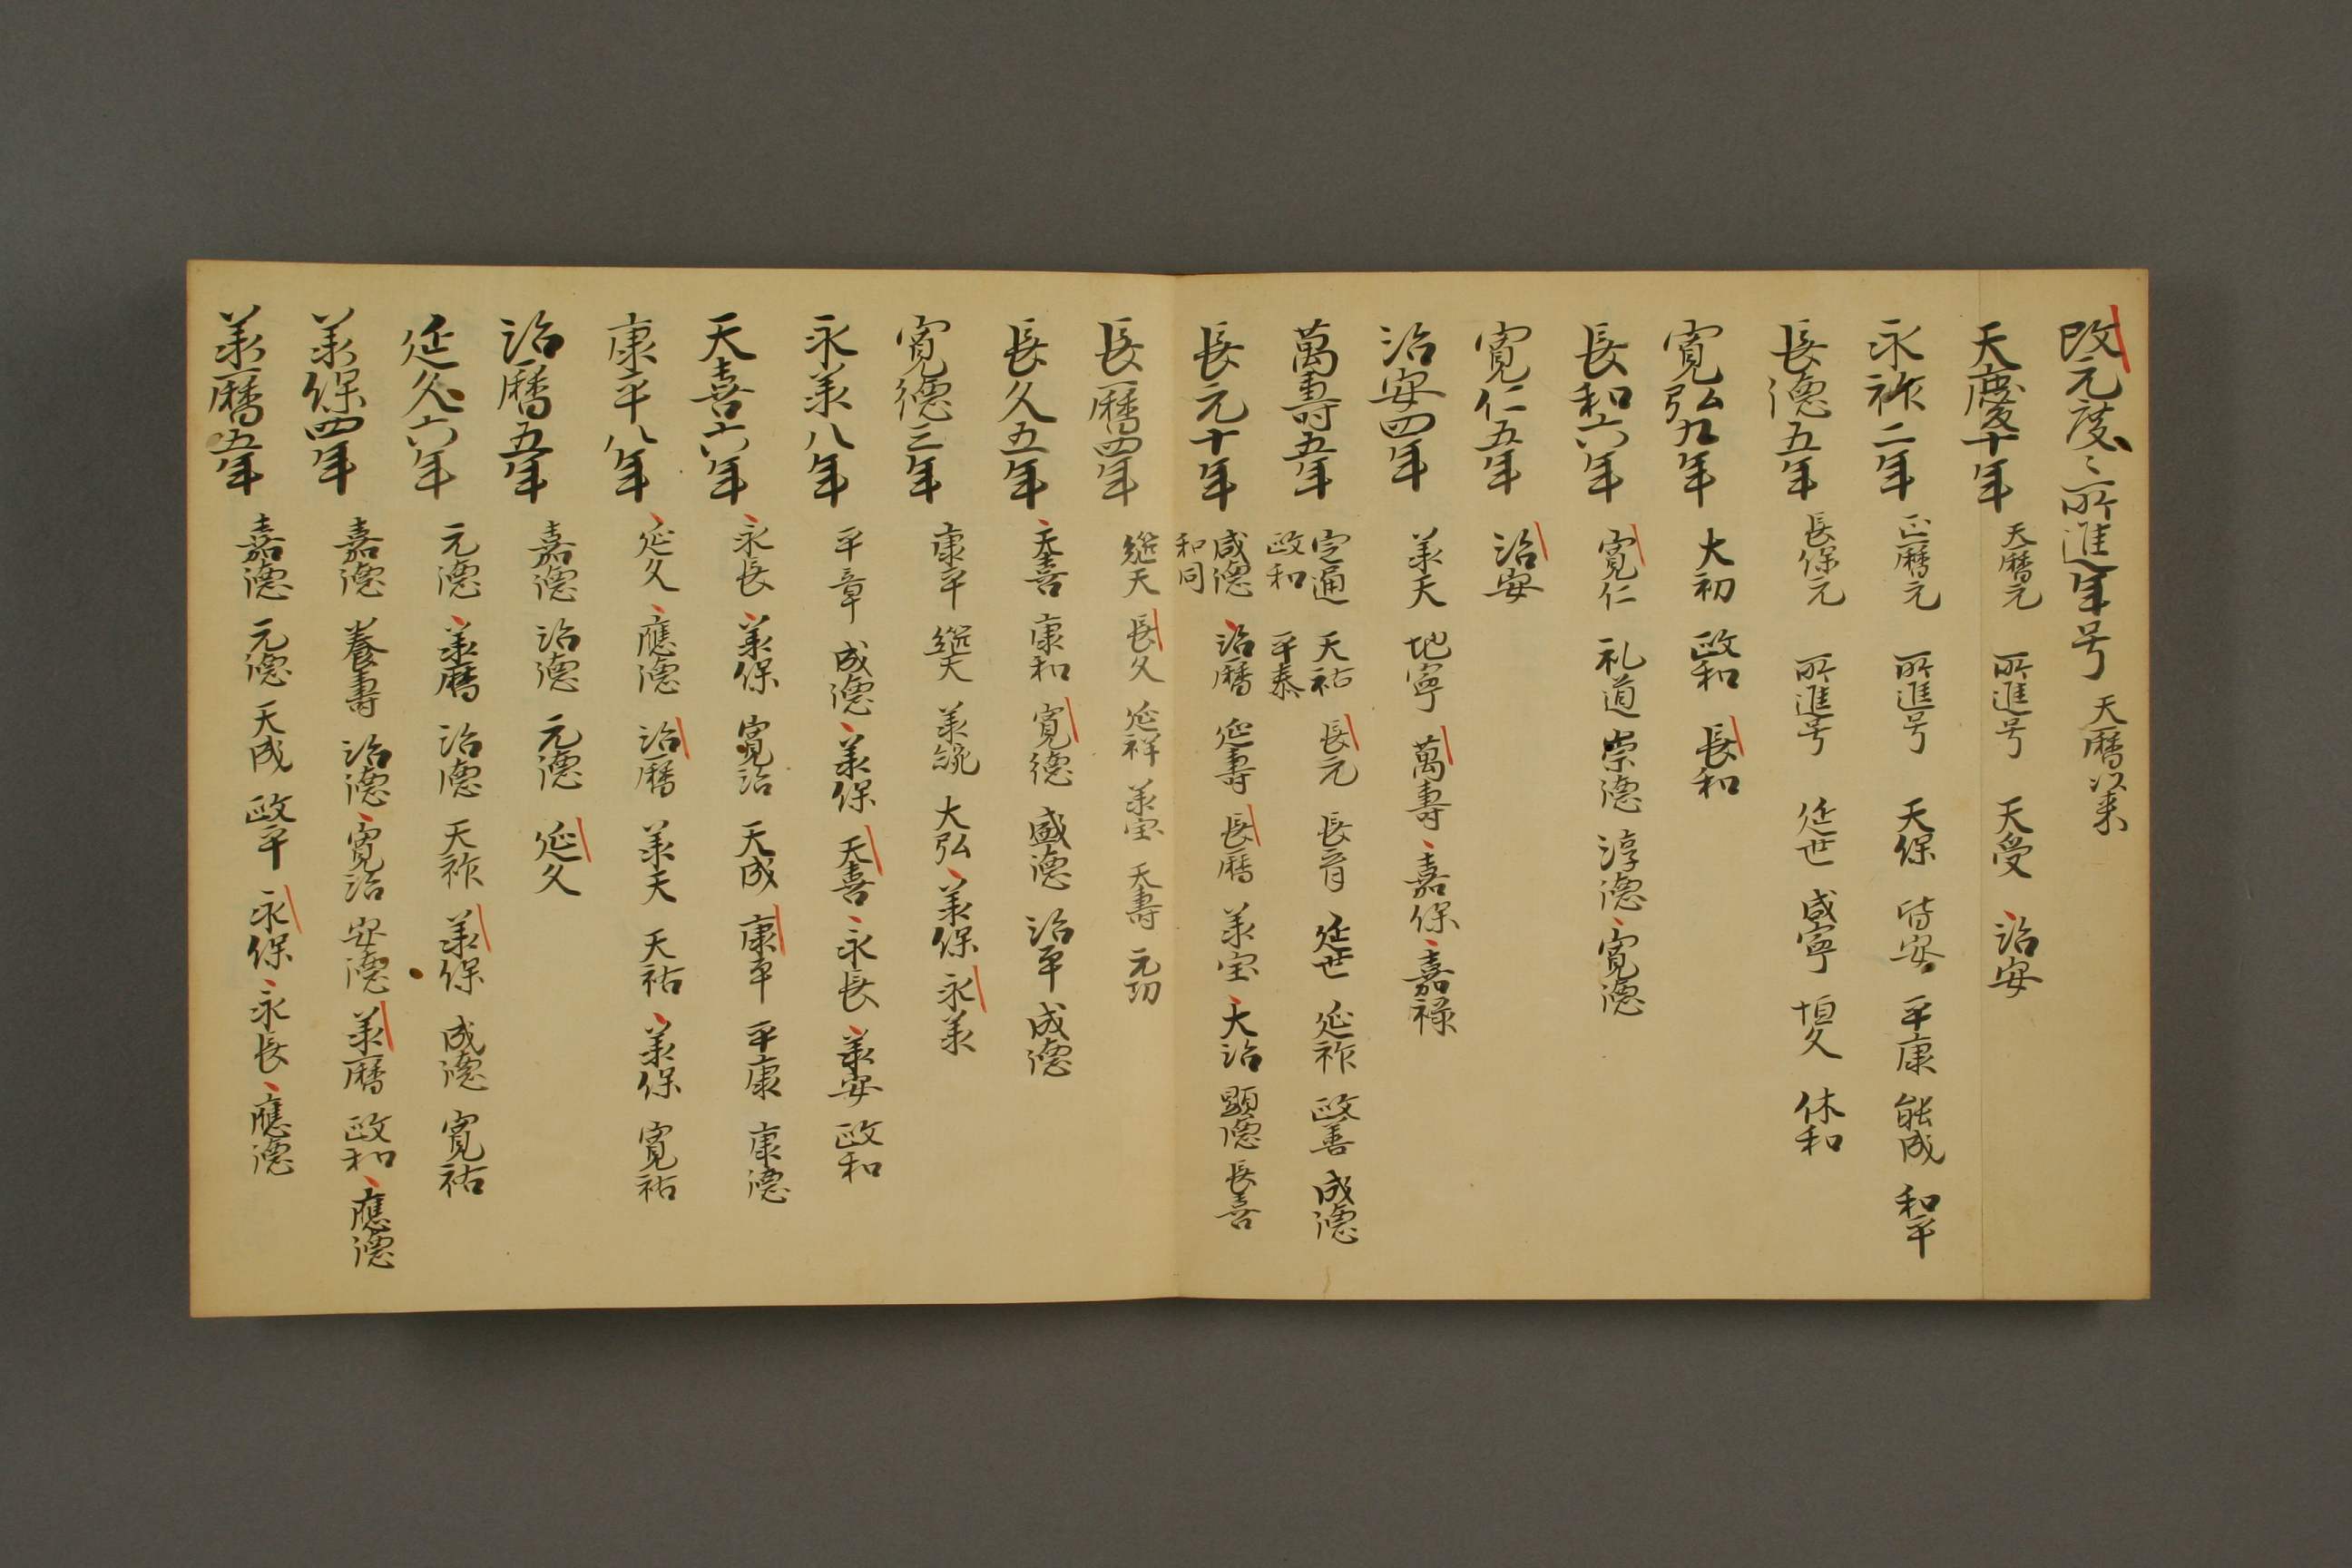 改元度々所進年号 天暦以来
天慶十年 天暦元 所進号 天受 治安
永祚二年 正暦元 所進号 天保 能成 平康 和平
長徳五年 長保元 所進号 延世 咸寧 恒久 休和
寛弘九年 大初 政和 長和
長和六年 寛仁 礼道 崇徳 淳徳 寛徳
寛仁五年 治安
治安四年 羕天 地寧 萬壽 嘉保 嘉禄
萬壽五年 定通 天祐 長元 長育 延世 延祚 政善 成徳
政和 平泰
長元十年 咸徳 治暦 延壽 長暦 羕宝 大治 顕徳 長喜
和同
長暦四年 継天 長久 延祥 羕宝 天壽 元功
長久五年 天喜 康和 寛徳 盛徳 治平 成徳
寛徳三年 康平 継天 羕統 大弘 羕保 永羕
永羕八年 平章 成徳 羕保 天喜 永長 羕安 政和
天喜六年 永長 羕保 寛治 天成 康平 平康 康徳
康平八年 延久 應徳 治暦 羕天 天祐 羕保 寛祐
治暦五年 嘉徳 治徳 元徳 延久
延久六年 元徳 羕暦 治徳 天祚 羕保 成徳 寛祐
羕保四年 嘉徳 養壽 治徳 寛治 安徳 羕暦 政和 應徳
羕暦五年 嘉徳 元徳 天成 政平 永保 永長 應徳